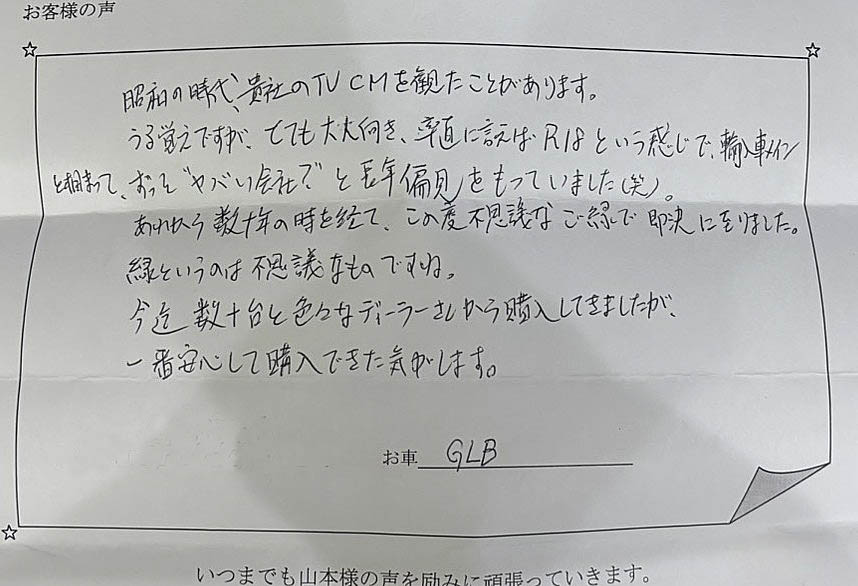 お客様の声
昭和の時代、貴社のTV CMを観たことがあります。
うる覚えですが、とても大人向き、率直に言えばR18という感じで、輸入車メイン
と相まって、ずっと“ヤバい会社で”と長年偏見をもっていました(笑)。
あれから数十年の時を経て、この度不思議なご縁で即決に至りました。
縁というのは不思議なものですね。
今迄数十台と色々なディーラーさんから購入してきましたが、
一番安心して購入できた気がします。
お車 GLB
いつまでも山本様の声を励みに頑張っていきます。